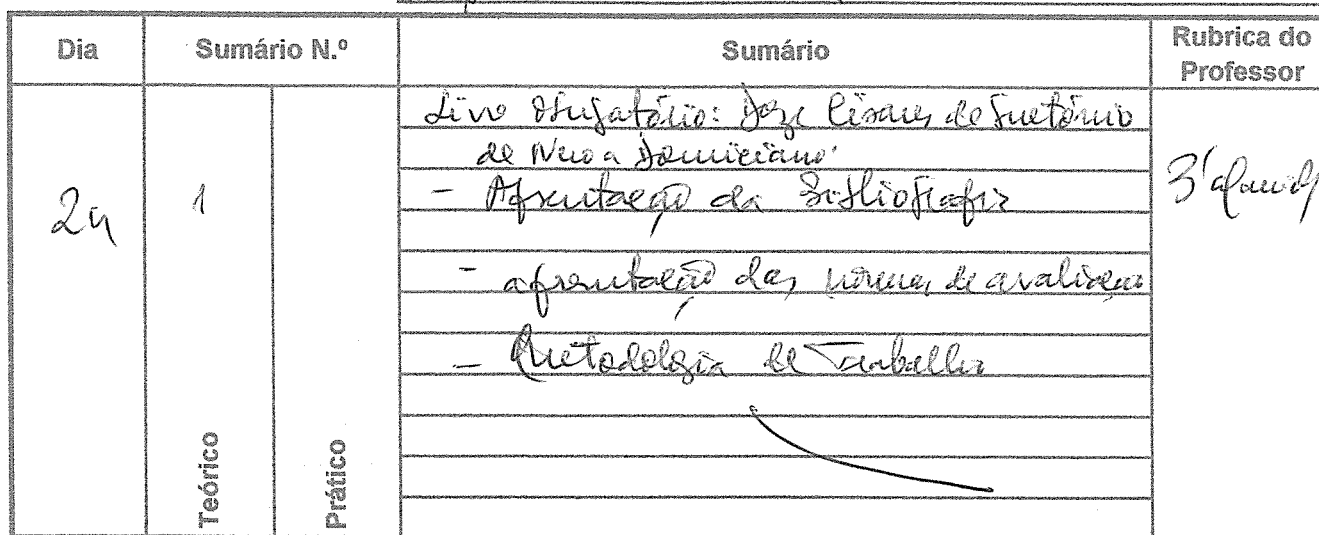 Dia
Sumário N.º
Sumário
Rubrica do
Professor
2ª
1
Livro obrigatório: Doze Césares de Suetónio
de Nero a Domiciano.
- Apresentação da Bibliografia
- apresentação das normas de avaliação
- Metodologia de Trabalho
Teórico
Prático